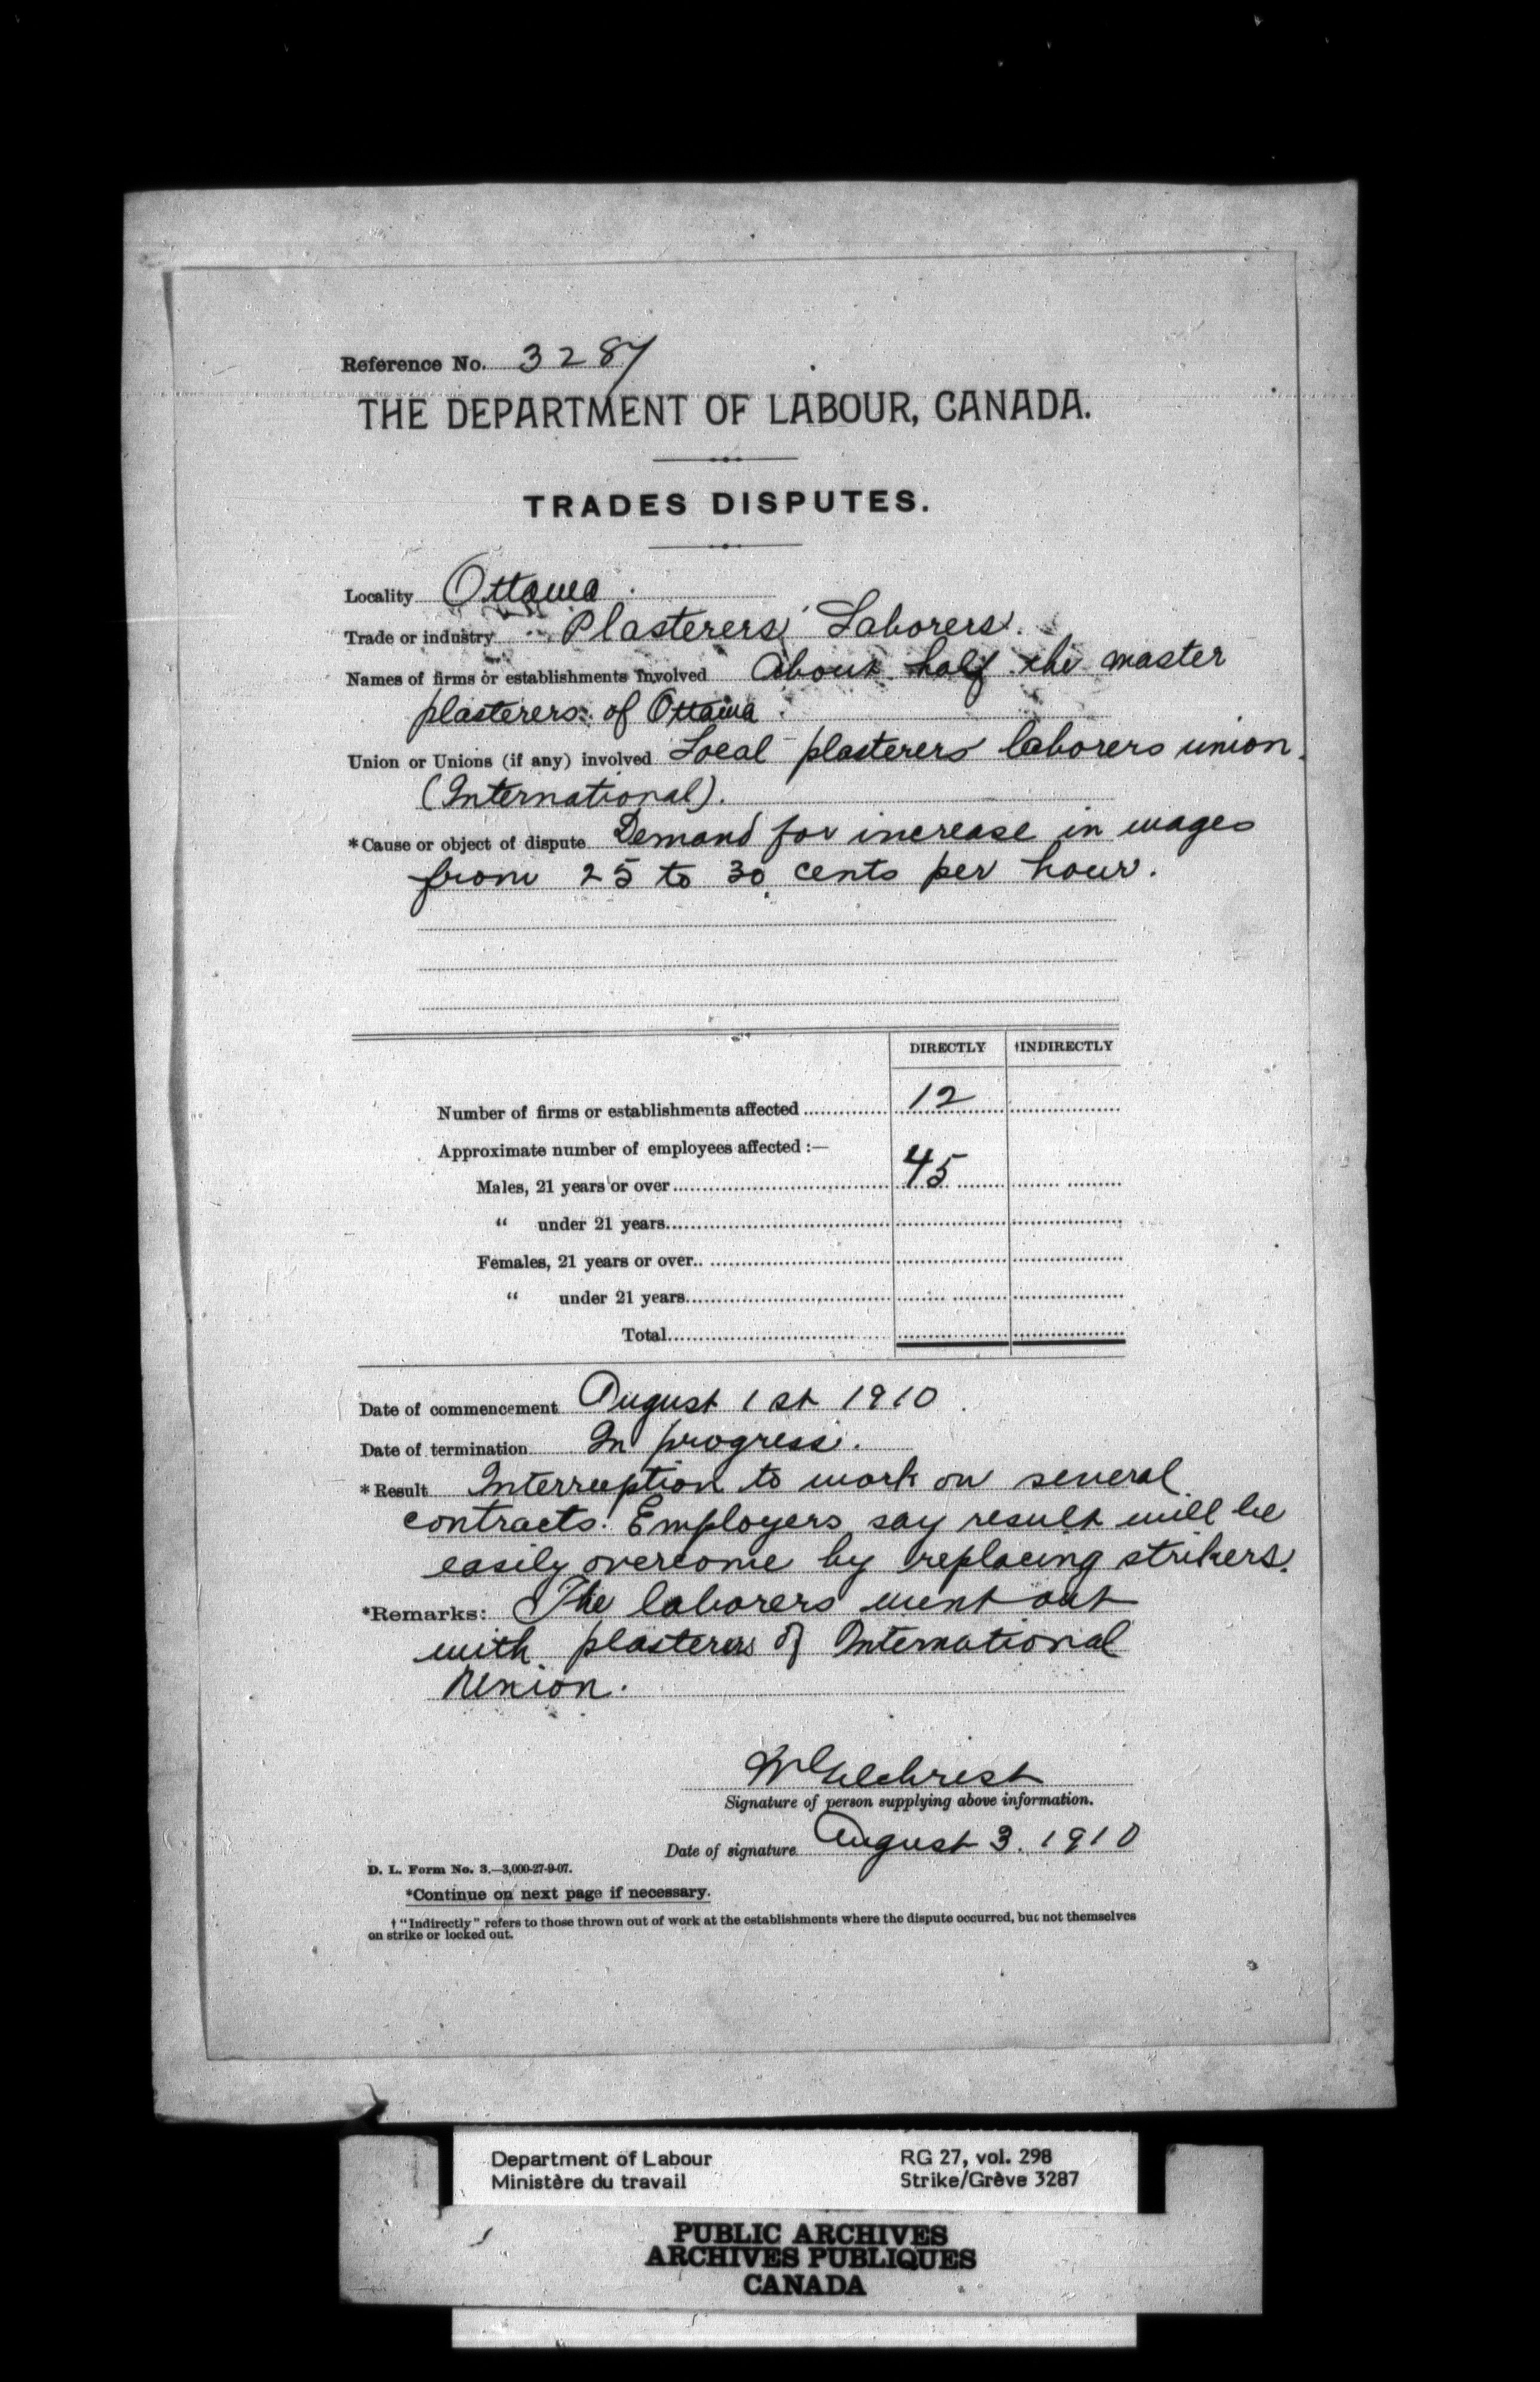 Reference No. 3287
THE DEPARTMENT OF LABOUR, CANADA.
TRADES DISPUTES.
Locality Ottawa.
Trade or industry Plasterers' Laborers.
Names of firms or establishments involved About half the master
plasterers of Ottawa.
Union or Unions (if any) involved Local plasterers laborers union.
(International).
*Cause or object of dispute Demand for increase in wages
from 25 to 30 cents per hour.
DIRECTLY †INDIRECTLY
Number of firms or establishments affected 12
Approximate number of employees affected :—
Males, 21 years or over 45
“ under 21 years
Females, 21 years or over
“ under 21 years
Total
Date of commencement August 1st 1910.
Date of termination In progress.
*Result Interruption to work on several
contracts. Employers say result will be
easily overcome by replacing strikers.
*Remarks: The laborers went out
with plasterers of International
Union.
W Gilchrist
Signature of person supplying above information.
Date of signature August 3. 1910
D. L. Form No. 3.—3,000-27-9-07.
*Continue on next page if necessary.
† “Indirectly” refers to those thrown out of work at the establishments where the dispute occurred, but not themselves
on strike or locked out.
Department of Labour RG 27, vol. 298
Ministère du travail Strike/Grève 3287
PUBLIC ARCHIVES
ARCHIVES PUBLIQUES
CANADA